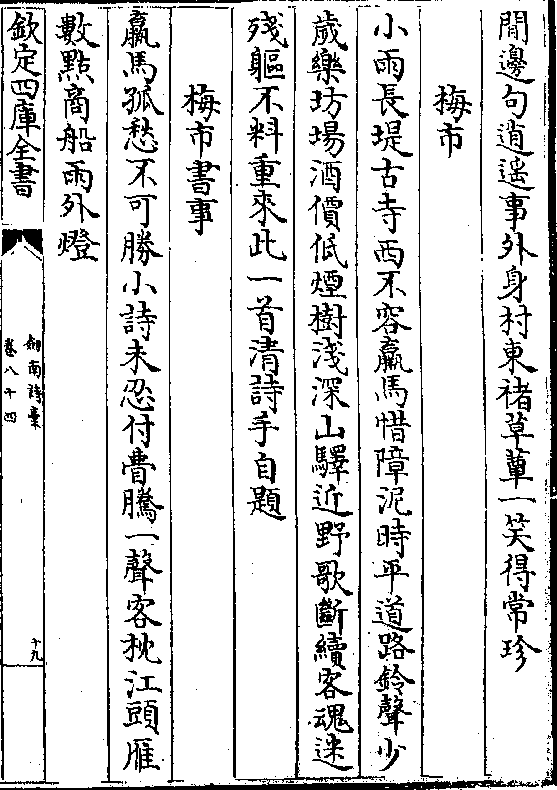 閒邊句逍遥事外身村東褚草蕈一笑得常珍
梅市
小雨長堤古寺西不容羸馬惜障泥時平道路鈴聲少
歲樂坊場酒價低煙樹淺深山驛近野歌斷續客魂迷
殘軀不料重來此一首清詩手自題
梅市書事
羸馬孤愁不可勝小詩未忍付瞢騰一聲客枕江頭雁
數點商船雨外燈
欽定四庫全書
劍南詩稾
卷八十四
十九